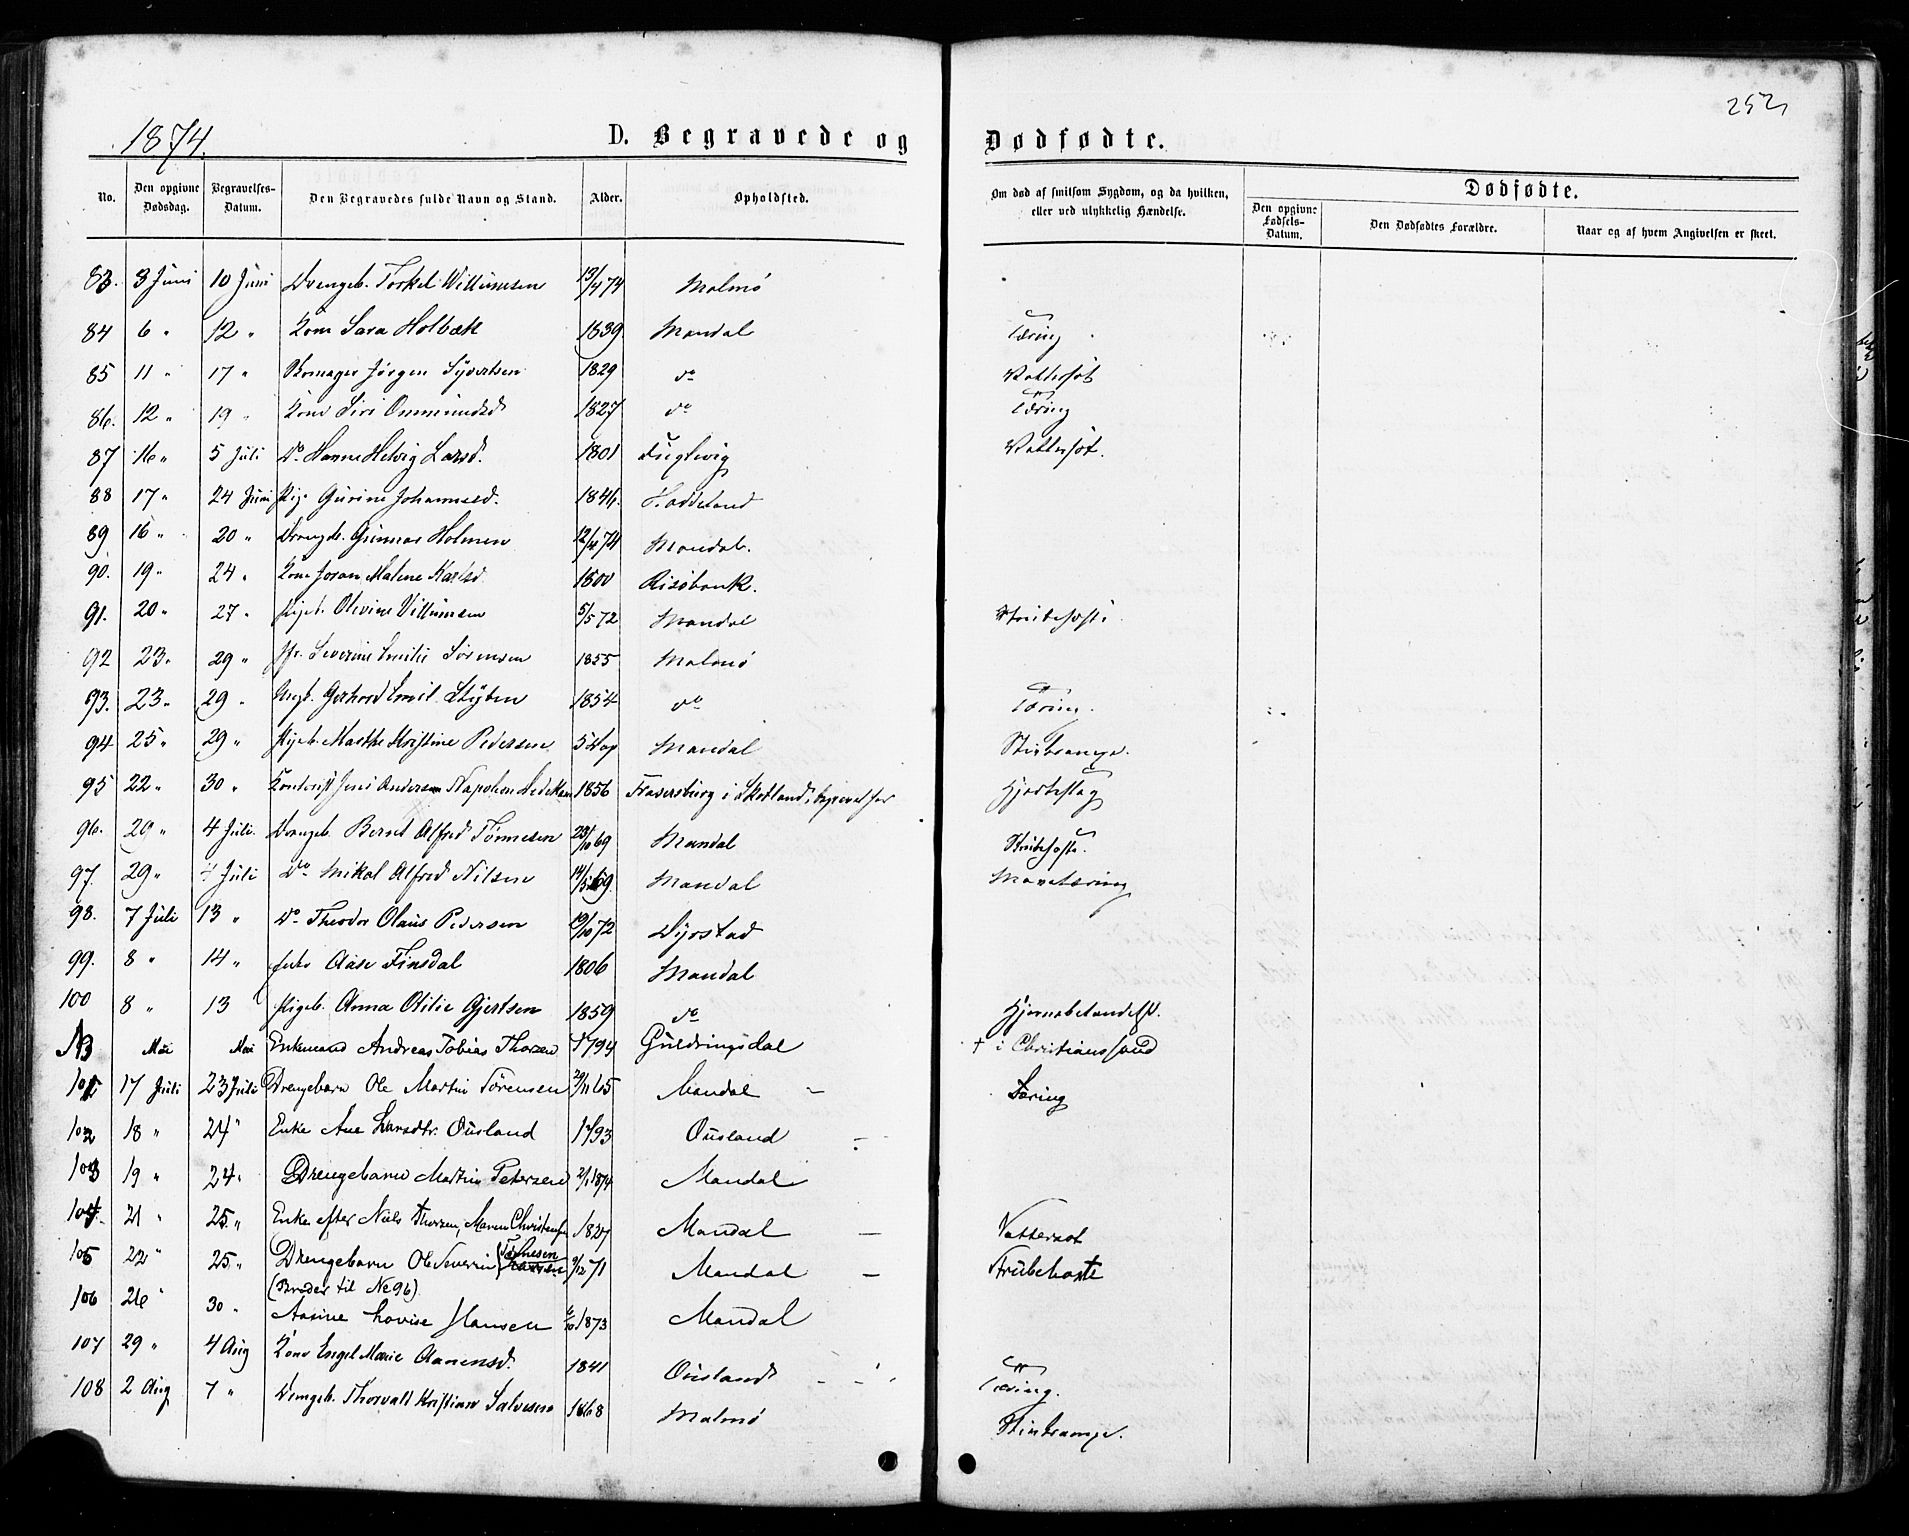 252
1874.
D. Begravede og Dødfødte.
No. Den opgivne Dødsdag. Begravelses-Datum. Den Begravedes fulde Navn og Stand. Alder. Opholdsted. Om død af smitsom Sygdom, og da hvilken, eller ved ulykkelig Hændelse. Dødfødte.
Den opgivne Fødsels-Datum. Den Dødfødtes Forældre. Naar og af hvem Angivelsen er skeet.
83. 8 Juni 10 Juni Drengeb. Torkel Willumsen 13/4 74 Malmø
84 6 " 12 " Kone Sara Holbæk 1839 Mandal Tæring
85 11 " 17 " Skomager Jørgen Syvertsen 1829 do Vattersot
86. 12 " 19 " Kone Siri Ommundsd 1827 do Tæring
87 16 " 5 Juli Do Hanne Helvig Larsd. 1801 Fuglevig Vattersot.
88 17 " 24 Juni Pige Gurine Johannesd. 1846. Haddeland
89 16 " 20 " Drengeb. Gunnar Holmen 12/4 74 Mandal.
90. 19 " 24 " Kone Joran Malene Karlsd. 1800 Risøbank.
91. 20 " 27 " Pigeb. Olivine Villumsen 5/5 72 Mandal Strubehoste
92 23 " 29 " Severine Emilie Sørensen 1855 Malmø
93. 23 " 29 " Ungk. Gerhard Emil Styben 1854 do Tæring.
94 25 " 29 " Pigeb. Marthe Kristine Pedersen 5 Dage Mandal Stivkrampe.
95 22 " 30 " Kontorist Jens Andersen Napoleon 1856 Fraserburg i Skotland, begravet her Hjerteslag
96. 29 " 4 Juli. Drengeb. Bernt Alfred Tønnesen 23/10 69 Mandal Strubehoste.
97. 29 " 4 Juli Do Mikal Alfred Nilsen 14/5 69 Mandal Mavetæring
98. 7 Juli 13 " Do Theodor Olaus Pedersen 19/10 72 Dyrstad
99. 8 " 14 " Enke Aase Finsdal 1806 Mandal
100 8 " 13 Pigeb. Anna Otilie Gjertsen 1859 do Hjernebetændelse.
NB Mai Mai Enkemand Andreas Tobias Thorsen 1794 Guldringsdal † i Christianssand
101 17 Juli 23 Juli Drengebarn Ole Martin Sørensen 29/11 65 Mandal Tæring
102 18 " 24 " Enke Ane Larsdtr. Ousland 1793 Ousland
103 19 " 24 " Drengebarn Martin Petersen 2/1 1874 Mandal
104. 21 " 25 " Enke efter Niels Thorsen, Maren 1827 Mandal Vattersot
105 22 " 25 " Drengebarn Ole Severin Tønnesen 9/12 71 Mandal Strubehoste
(Broder til No 96)
106 26 " 30 " Aasine Lovise Hansen 1873 Mandal
107 29 " 4 Aug Kone Engel Marie Aanensd. 1841 Ousland Tæring.
108 2 Aug 7 " Drengeb. Thorvald Kristian Salvesen 1868 Malmø Stivkrampe.